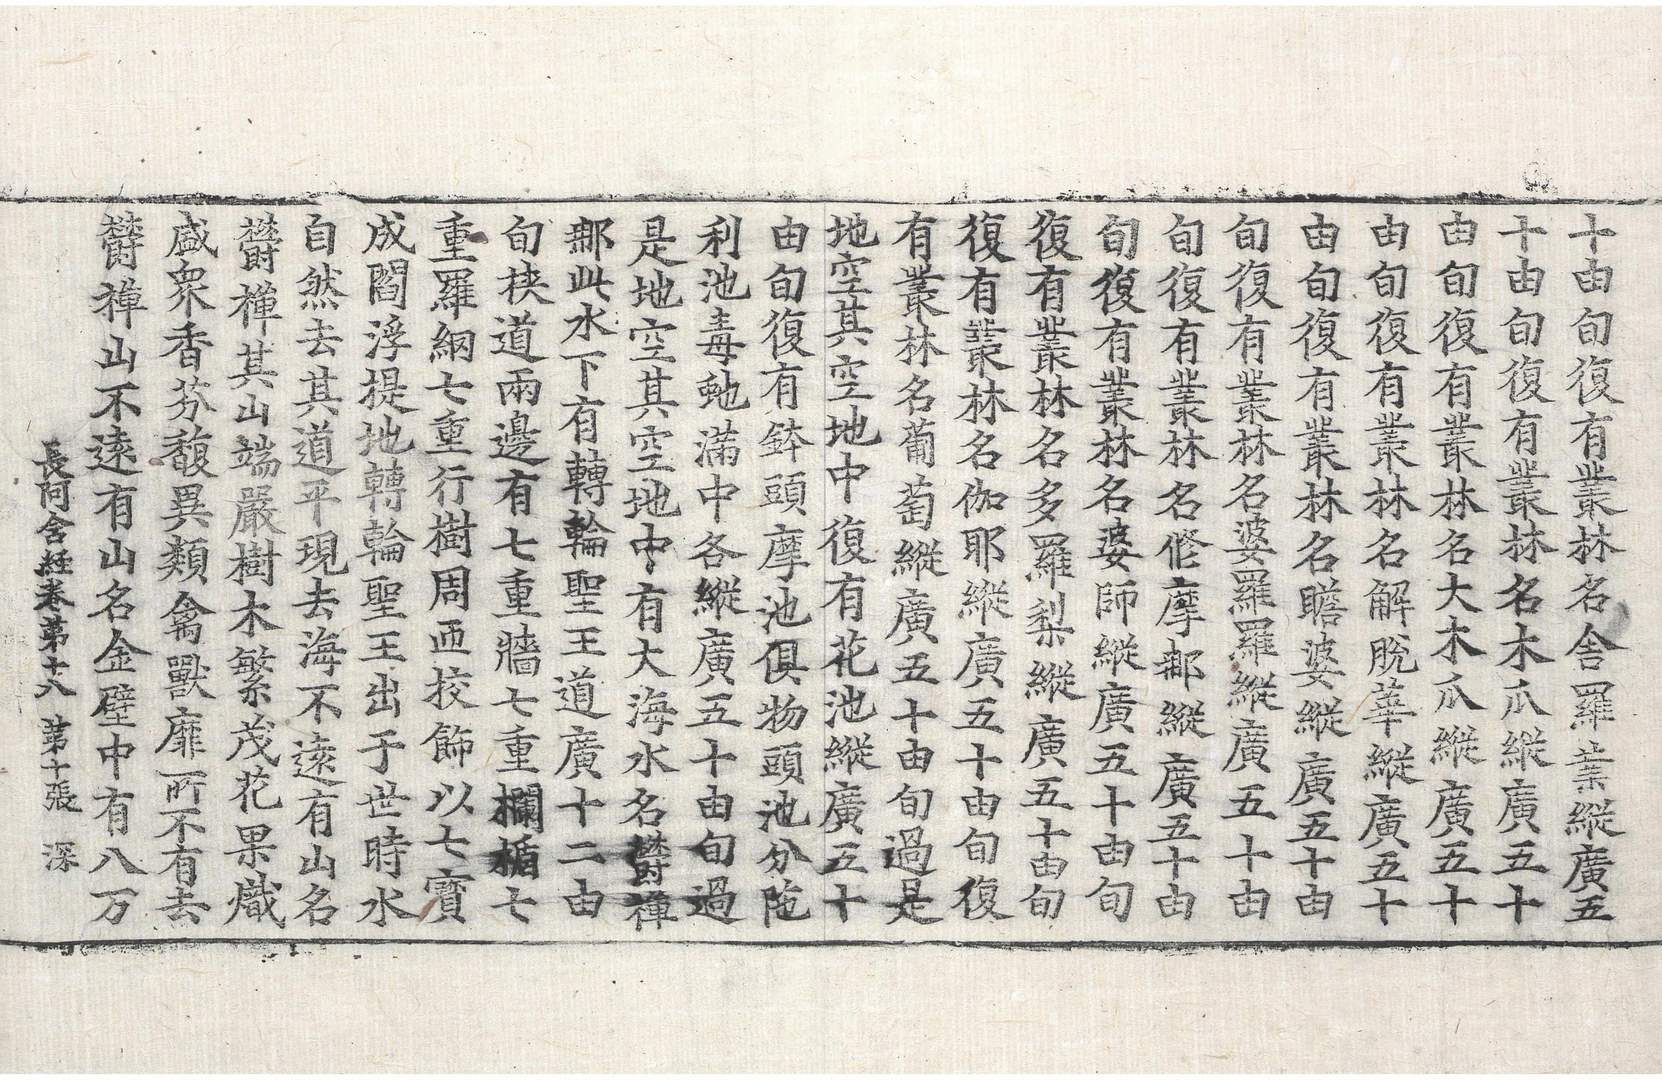 十由旬復有叢林名舍羅業縱廣五
十由旬復有叢林名木爪縱廣五十
由旬復有叢林名大木爪縱廣五十
由旬復有叢林名解脫華縱廣五十
由旬復有叢林名瞻婆縱廣五十由
旬復有叢林名婆羅羅縱廣五十由
旬復有叢林名修摩那縱廣五十由
旬復有叢林名婆師縱廣五十由旬
復有叢林名多羅梨縱廣五十由旬
復有叢林名伽耶縱廣五十由旬復
有叢林名葡萄縱廣五十由旬過是
地空其空地中復有花池縱廣五十
由旬復有鉢頭摩池俱物頭池分陁
利池毒虵滿中各縱廣五十由旬過
是地空其空地中有大海水名欝禪
那此水下有轉輪聖王道廣十二由
旬挟道兩邊有七重牆七重欄楯七
重羅網七重行樹周迊挍飾以七寶
成閻浮提地轉輪聖王出于世時水
自然去其道平現去海不遠有山名
欝禪其山端嚴樹木繁茂花果熾
盛衆香芬馥異類禽獸靡所不有去
欝禪山不遠有山名金壁中有八万
長阿含経卷第十八　第十張　深